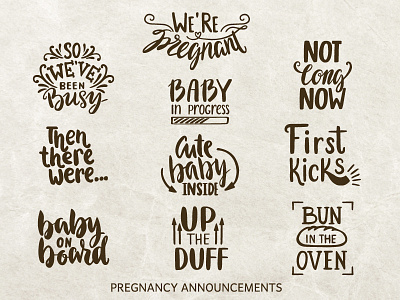 WE'RE
pregnant
SO
WE'VE
BEEN
Busy
BABY
IN PROGRESS
NOT
Long
NOW
Then
there
were...
Cute
baby
INSIDE
First
Kicks
baby
ON
board
UP
THE
DUFF
BUN
IN THE
OVEN
PREGNANCY ANNOUNCEMENTS